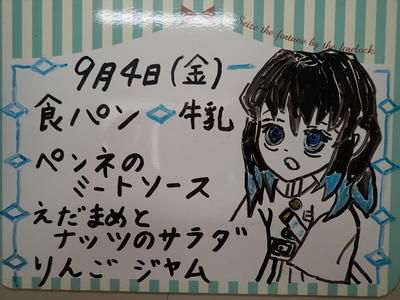 Seize the fortune by the forelock.
9月4日(金)
食パン 牛乳
ペンネの
ミートソース
えだまめと
ナッツのサラダ
りんごジャム